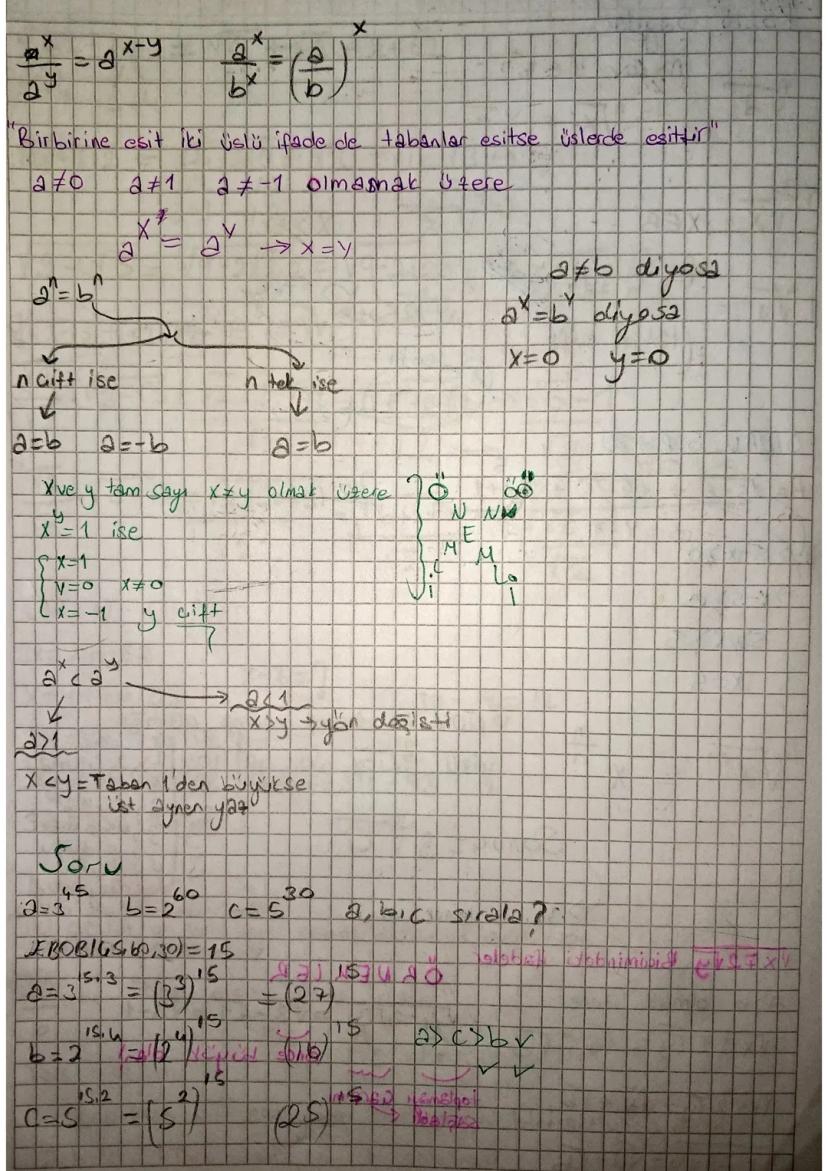 a^x/a^y = a^(x-y)    a^x/b^x = (a/b)^x
"Birbirine eşit iki üslü ifade de tabanlar eşitse üslerde eşittir"
a≠0   a≠1   a≠-1 olmamak üzere
a^x = a^y → x=y
a≠b diyosa
a^n = b^n
a^x = b^y diyosa
x=0   y=0
n çift ise   n tek ise
a=b   a=-b   a=b
x ve y tam sayı x≠y olmak üzere
x^y = 1 ise
x=1
y=0   x≠0
x=-1   y çift
ÖNEMLİ
a^x < a^y
a<1
x>y → yön değişti
a>1
x<y = Taban 1'den büyükse
üst aynen yaz
Soru
a=3^45   b=2^60   c=5^30   a, b, c sırala?
EBOB(45,60,30) = 15
a=3^15.3 = (3^3)^15 = (27)^15
b=2^15.4 = (2^4)^15   (16)^15   a>c>b ✓
c=5^15.2 = (5^2)^15   (25)^15